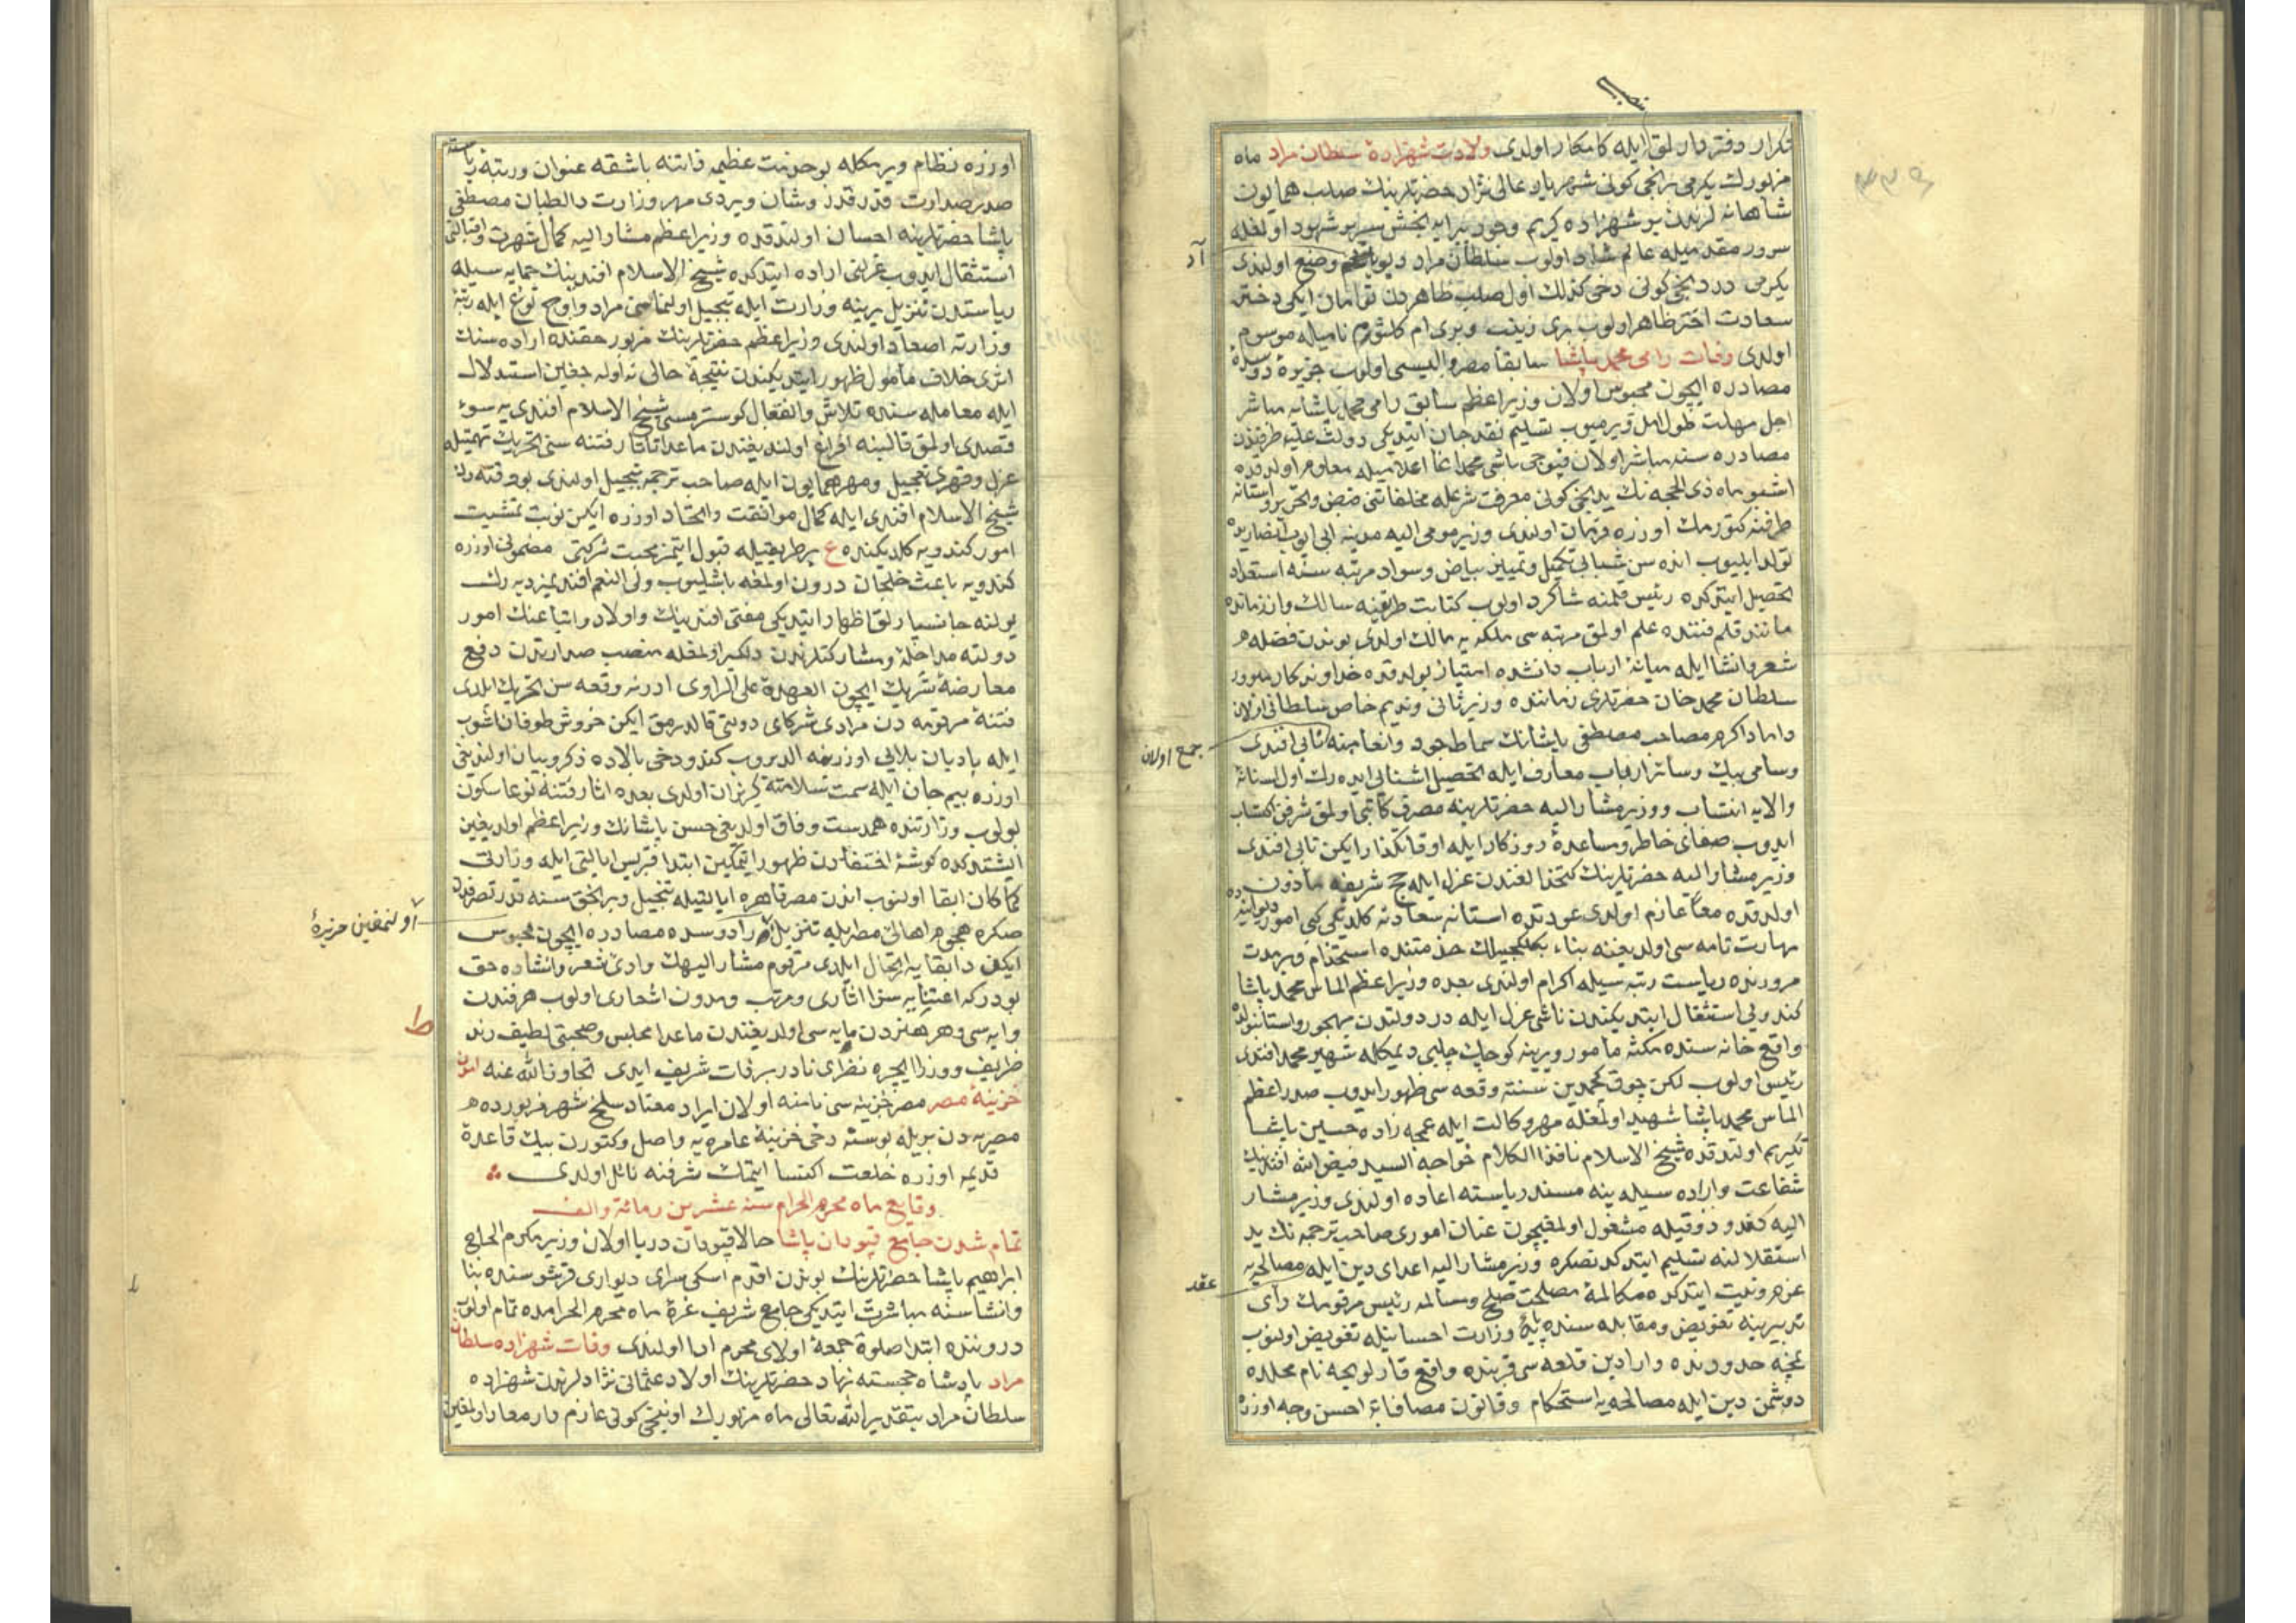 تكرار دفتردارلق ايله كامكار اولدى ولادت شهزاده سلطان مراد ماه
مزبورك يكرمى برنجى كونى شهريار عالى نژاد حضرتلرينك صلب همايون
شاهانه لرندن بر شهزاده كريم وجود پيرايه بخش سرير شهود اولمغله
سرور مقدميله عالم شاد اولوب سلطان مراد ديو وضع اولندى
يكرمى دردنجى كونى دخى كذلك اول صلب طاهردن توأمان ايكى دختر
سعادت اختر ظاهر اولوب برى زينب وبرى ام كلثوم ناميله موسوم
اولدى وفات رامى محمد پاشا سابقا مصر واليسى اولوب جزيره ردوسده
مصادره ايچون محبوس اولان وزير اعظم سابق رامى محمد پاشايه مباشر
اجل مهلت طول امل ويرميوب تسليم نقد جان ايتديكى دولت عليه طرفندن
مصادره سنه مباشر اولان قپوجى باشى محمد اغا اعلاميله معلوم اولدقده
اشبو ماه ذى الحجه نك يدنجى كونى معرفت شرعله مخلفاتنى ضبط وتحرير واستانه
طرفنه كتورمك اوزره فرمان اولندى وزير مومى اليه مدينه ابى ايوب انصاريده
تولد ايليوب انده سن شبابى تكميل وتمييز بياض وسواد مرتبه سنه استعداد
تحصيل ايتدكده رئيس قلمنه شاكرد اولوب كتابت طريقنه سالك واز زمانده
مانند قلم فننده علم اولمق مرتبه سى ملكه يه مالك اولدى بوندن فضله
شعر وانشا ايله ميانه ارباب دانشده امتياز بولدقده خداوندكار
سلطان محمد خان حضرتلرى زماننده وزير ثانى ونديم خاص سلطانى اولان
داماد اكرم مصاحب مصطفى پاشانك سماط جود وانعامنه نابى افندى
جمع اولان
وسامى بيك وسائر ارباب معارف ايله تحصيل اشنايى ايده رك اول استانه
والايه انتساب ووزير مشار اليه حضرتلرينه مصرف كاتبى اولمق شرفن اكتساب
ايدوب صفاى خاطر ومساعده روزكار ايله اوقاتكذار ايكن نابى افندى
وزير مشار اليه حضرتلرينك كتخدالغندن عزل ايله حج شريفه مأذون
اولدقده معا عازم اولدى عودتده استانه سعادته كلديكى كبى امور ديوانيه ده
مهارت تامه سى اولديغنه بناء بكلكجيلك خدمتنده استخدام وبر مدت
مرورنده رياست رتبه سيله اكرام اولندى بعده وزير اعظم الماس محمد پاشا
كندويى استثقال ايتديكندن ناشى عزل ايله در دولتدن مهجور واستانبولده
واقع خانه سنده مكثه مامور ويرينه كوچك چلبى ديمكله شهير محمد افندى
رئيس اولوب لكن چوق كچمدين سنته وقعه سى ظهور ايدوب صدر اعظم
الماس محمد پاشا شهيد اولمغله مهر وكالت ايله عمجه زاده حسين پاشا
تكريم اولندقده شيخ الاسلام نافذ الكلام خواجه السيد فيض الله افندينك
شفاعت واراده سيله ينه مسند رياسته اعاده اولندى وزير مشار
اليه كندو ذوقيله مشغول اولمغيچون عنان امورى صاحب ترجمه نك يد
استقلالنه تسليم ايتدكدنصكره وزير مشار اليه اعداى دين ايله مصالحه يه
عقد
عزم ونيت ايتدكده مكالمه مصلحت صلح ومسالمه رئيس مرقومك رأى
تدبيرينه تفويض ومقابله سنده پايه وزارت احسانيله تفويض اولنوب
نمچه حدودنده وارادين قلعه سى قربنده واقع قارلويچه نام محلده
دوشمن دين ايله مصالحه يه استحكام وقانون مصافاته احسن وجه اوزره
اوزره نظام ويرمكله بو خدمت عظيمه ذاتنه باشقه عنوان ورتبه
صدر صدارت قدر قدر وشان ويردى مهر وزارت دالطبان مصطفى
پاشا حضرتلرينه احسان اولندقده وزير اعظم مشار اليه كمال شهرت واقبالنى
استثقال ايدوب عزلنى اراده ايتدكده شيخ الاسلام افندينك حمايه سيله
رياستدن تنزيل يرينه وزارت ايله تبجيل اولنماسى مراد واوج نوع ايله رتبه
وزارته اصعاد اولندى وزير اعظم حضرتلرينك مزبور حقنده اراده سنك
اثرى خلاف مأمول ظهور ايتديكندن نتيجه حالى نه اوله جغين استدلال
ايله معامله سنده تلاش وانفعال كوسترمسى شيخ الاسلام افندى يه سوء
قصدى اولمق قالبنه افراغ اولنديغندن ماعدا تاتار فتنه سنى تحريك تهمتيله
عزل وقهرى تعجيل ومهر همايون ايله صاحب ترجمه تبجيل اولندى بو وقته دك
شيخ الاسلام افندى ايله كمال موافقت واتحاد اوزره ايكن نوبت تمشيت
امور كندويه كلديكنده ع بر طريقيله قبول ايتمز محبت شركتى مضمونى اوزره
كندويه باعث خلجان درون اولمغه باشليوب ولى النعم افنديمزديه رك
يولنه جانسپارلق اظهار ايتديكى مفتى افندينك واولاد واتباعنك امور
دولته مداخله ومشاركتلرندن دلكير اولمغله منصب صدارتدن دفع
معارضه شريك ايچون العهدة على الراوى ادرنه وقعه سن تحريك ايلدى
فتنه مرقومه دن مرادى شركاى دولتى قالدرمق ايكن خروش طوفان اشوب
ايله بادبان بلايى اوزرينه الديروب كندو دخى بالاده ذكر وبيان اولنديغى
اوزره بيم جان ايله سمت سلامته كريزان اولدى بعده اثار فتنه نوعا سكون
بولوب وزارتنده همدست وفاق اولديغى حسن پاشانك وزير اعظم اولديغين
ايشتدكده كوشه اختفادن ظهور ايتمكين ابتدا قبريس ايالتى ايله وزارتى
كماكان ابقا اولنوب اندن مصر قاهره ايالتيله تبجيل وبر بچق سنه قدر تصرفدن
صكره هجوم اهالى مصر ايله تنزيل ردوسده مصادره ايچون محبوس
اولنمغين جزيرۀ
ايكن دار بقايه ارتحال ايلدى مرقوم مشار اليهك وادى شعر وانشاده حق
بودركه اعتنايه سزا اثارى ومرتب ومدون اشعارى اولوب هر فندن
ط
وايه سى وهر هنردن مايه سى اولديغندن ماعدا مجلس وصحبتى لطيف رند
ظريف ووزرا ايچره نظيرى نادر بر ذات شريف ايدى تجاوز الله عنه
خزينۀ مصر مصر خزينه سى نامنه اولان ايراد معتاد سلخ شهر مزبورده
مصريه دن بريله بو سنه دخى خزينه عامره يه واصل وكتورن بيك قاعده
قديمه اوزره خلعت اكتسا ايتمك شرفنه نائل اولدى
وقايع ماه محرم الحرام سنه عشرين ومائة والف
تمام شدن جامع قپودان پاشا حالا قپودان دريا اولان وزير مكرم الحاج
ابراهيم پاشا حضرتلرينك بوندن اقدم اسكى سراى ديوارى قرشوسنده بنا
وانشاسنه مباشرت ايتديكى جامع شريف غره ماه محرم الحرامده تمام اولوب
دروننده ابتدا صلوة جمعه اولاى محرم ادا اولندى وفات شهزاده سلطان
مراد پادشاه خجسته نهاد حضرتلرينك اولاد عثمانى نژادلرندن شهزاده
سلطان مراد بتقدير الله تعالى ماه مزبورك اوننجى كونى عازم دار معاد اولمغين